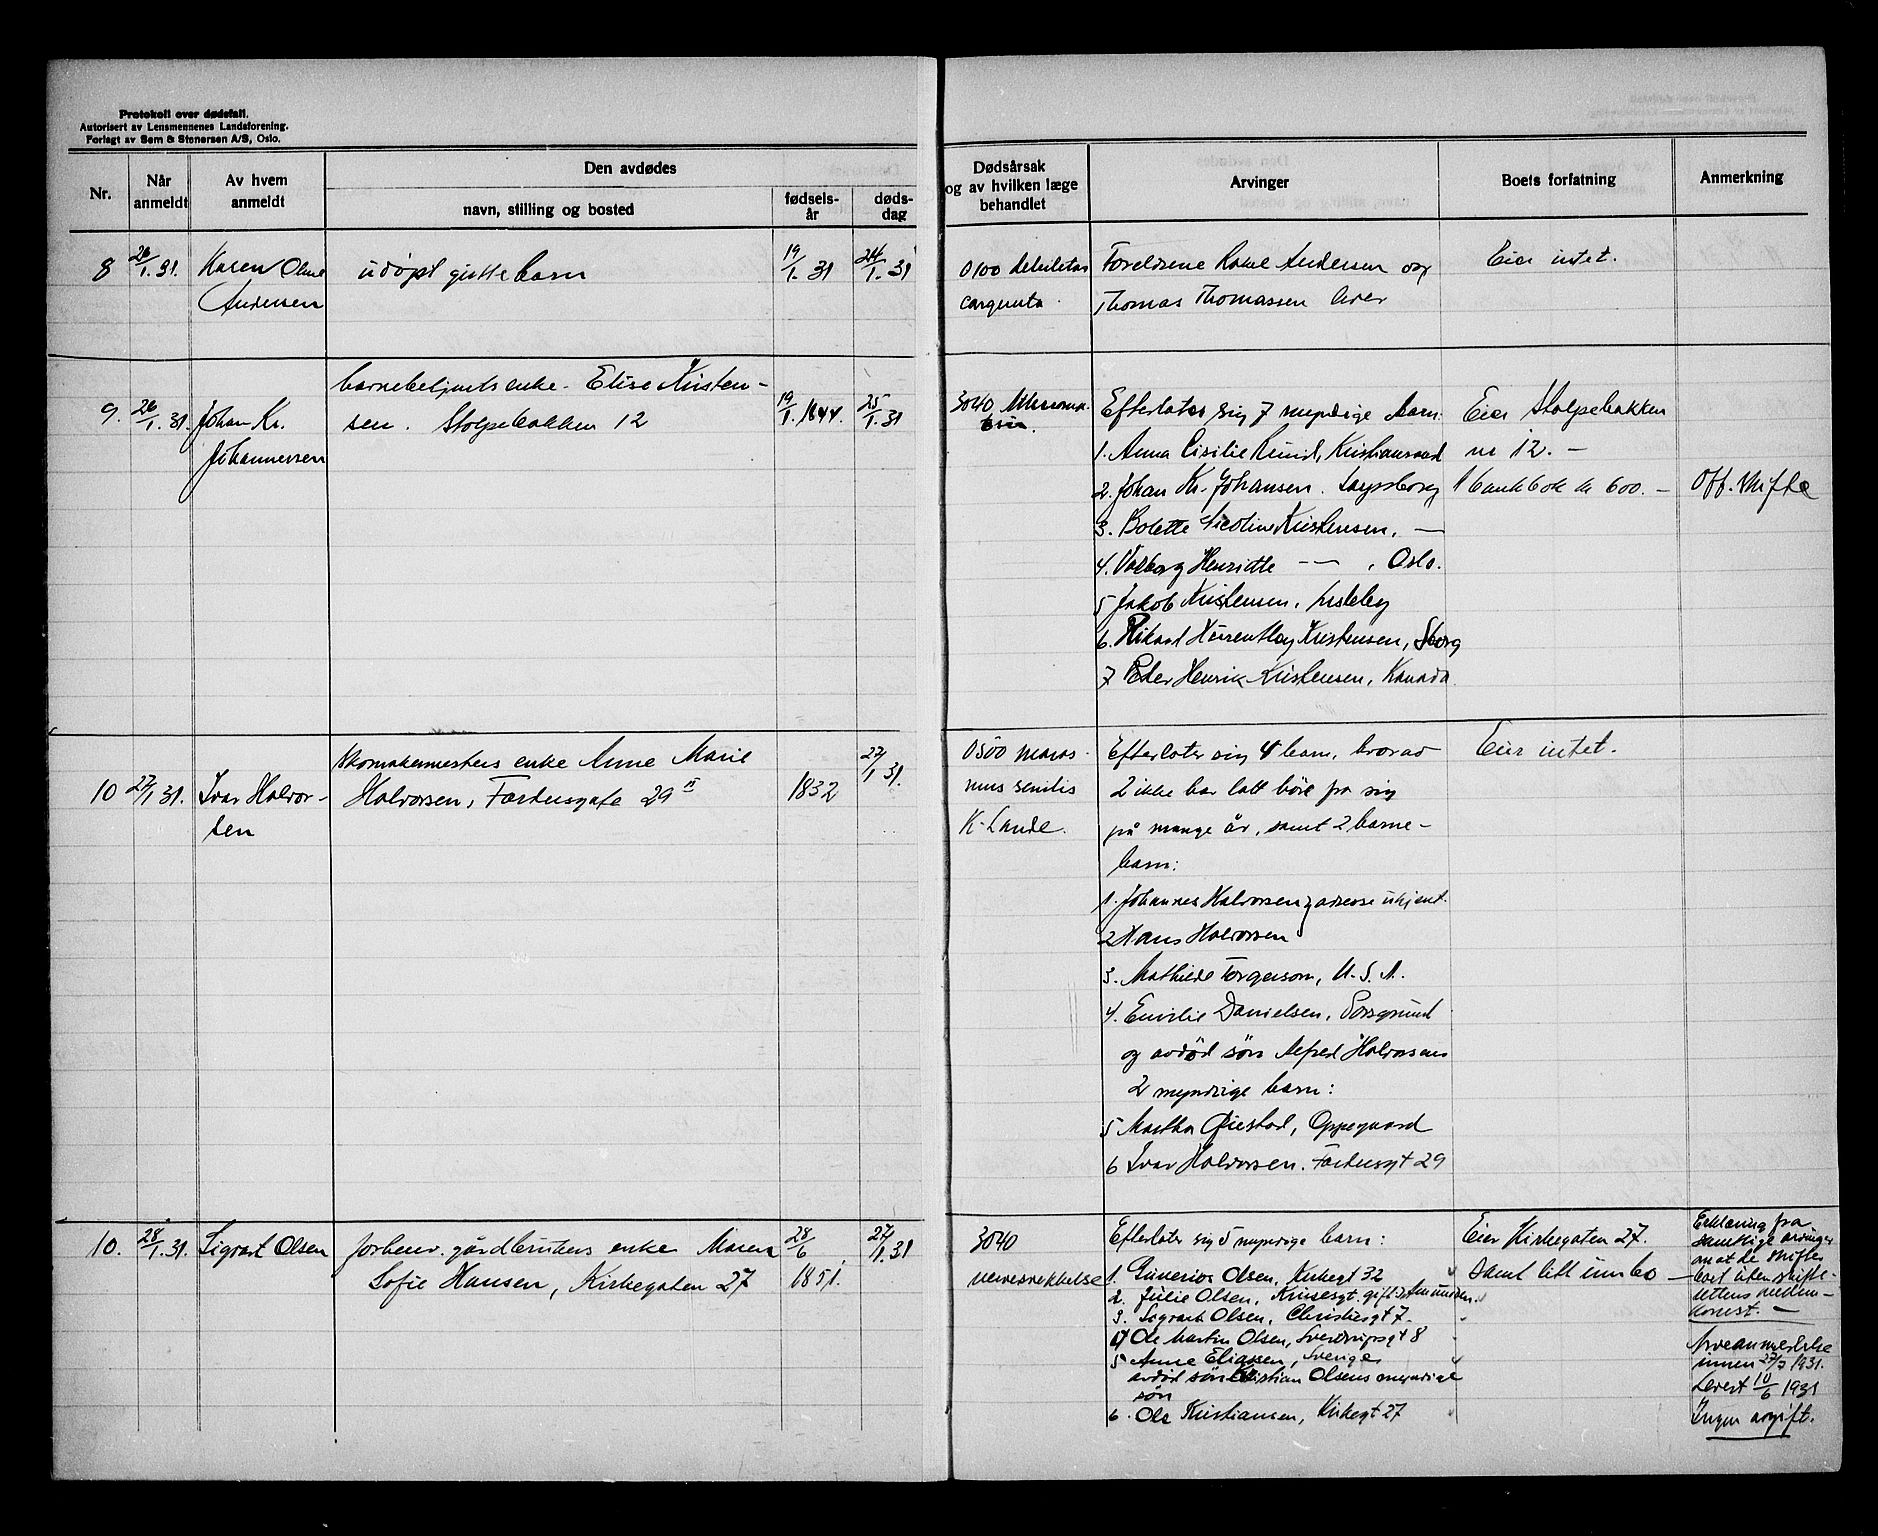 Protokoll over dødsfall.
Autorisert av Lensmennenes Landsforening.
Forlagt av Sem & Stenersen A/S, Oslo.
Nr.
Når anmeldt
Av hvem anmeldt
Den avdødes
navn, stilling og bosted
fødselsår
dødsdag
Dødsårsak og av hvilken læge behandlet
Arvinger
Boets forfatning
Anmerkning
8
26/1.31.
Karen Oline
Andersen
udøpt gutte barn
19/1.31
24/1.31
0100 debilitas
Foreldrene Rakel Andersen og
Thomas Thomassen lever
Eier intet.
9.
26/1.31.
Johan Kr.
Johannessen
enke. Elise Kristen-
sen. Stolpebakken 12
19/1.1844.
25/1.31
3040
Efterlater sig 7 myndige barn:
1. Anna Cisilie Lund, Kristiansand
2. Johan Kr. Johansen. Sarpsborg
3. Bolette Nicoline Kristensen, —
4. Valborg Henriette — — , Oslo.
5 Jakob Kristensen, Lisleby
6. Rikard Kristensen, Sborg
7 Peder Henrik Kristensen, Kanada
Eier Stolpebakken
nr 12. —
1 bankbok kr 600. —
Off. skifte
10
27/1.31.
Ivar Halvor-
sen
Skomakermesters enke Anne Marie
Halvorsen, Farbusgate 29 II
1832
27/1.31.
0500 maras-
mus senilis
K. Lande.
Efterlater sig 4 barn, hvorav
2 ikke har latt høre fra sig
på mange år, samt 2 barne-
barn:
1. Johannes Halvorsen, adresse ukjent.
2 Hans Halvorsen
3. Mathilde Torgerson, U.S.A.
4. Emilie Danielsen, Porsgrund
og avdød søn Alfred Halvorsens
2 myndige barn:
5 Martha Øiestad, Oppegaard
6 Ivar Halvorsen. Farbusgt 29
Eier intet.
10.
28/1.31.
Sigvart Olsen
forhenv. gårdbrukers enke Maren
Sofie Hansen, Kirkegaten 27
28/6 1851.
27/1.31
3040
Efterlater sig 5 myndige barn:
1. Gunerius Olsen, Kirkegt 32
2. Julie Olsen, Krusesgt. gift Amundsen.
3. Sigvart Olsen, Christiesgt 7.
4 Ole Martin Olsen, Sverdrupsgt 8
5 Anne Eliassen, Sverige
avdød søn Kristian Olsens myndige
søn
6. Ole Kristiansen, Kirkegt 27
Eier Kirkegaten 27.
samt litt innbo —
Erklæring fra
samtlige arvinger
om at de skifter
boet uten skifte-
rettens medvir-
Arveanmeldelse
innen 27/7 1931.
Levert 10/6 1931
Ingen avgift.